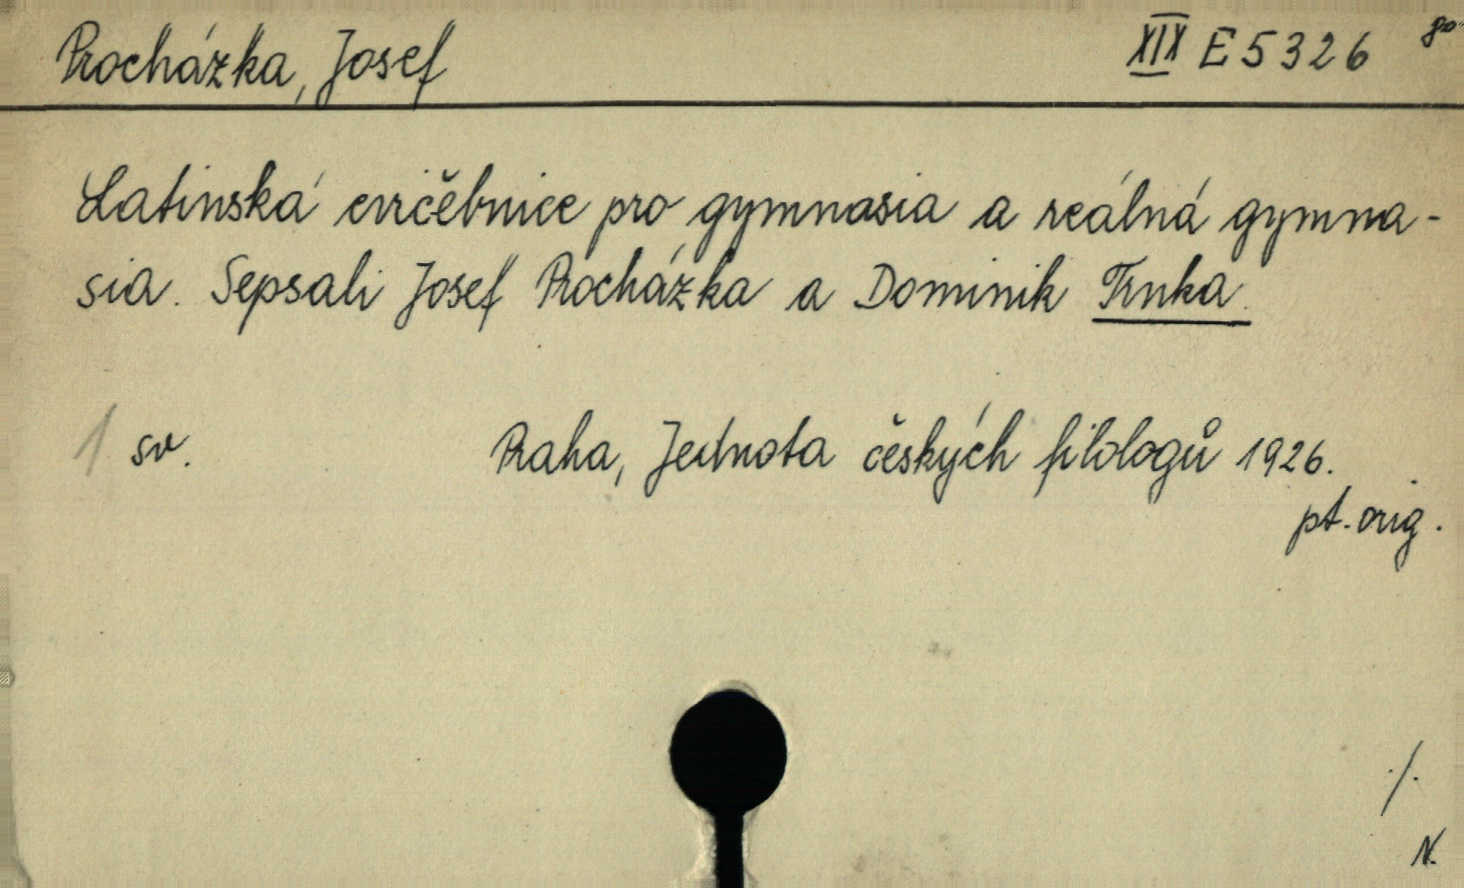 Procházka, Josef XIX E 5326 8°
Latinská cvičebnice pro gymnasia a reálná gymna-
sia. Sepsali Josef Procházka a Dominik Trnka.
1 sv. Praha, Jednota českých filologů 1926.
pt. orig.
./.
N.